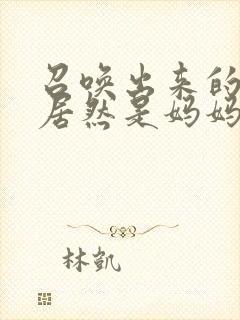 召唤出来的
居然是妈妈
林凯